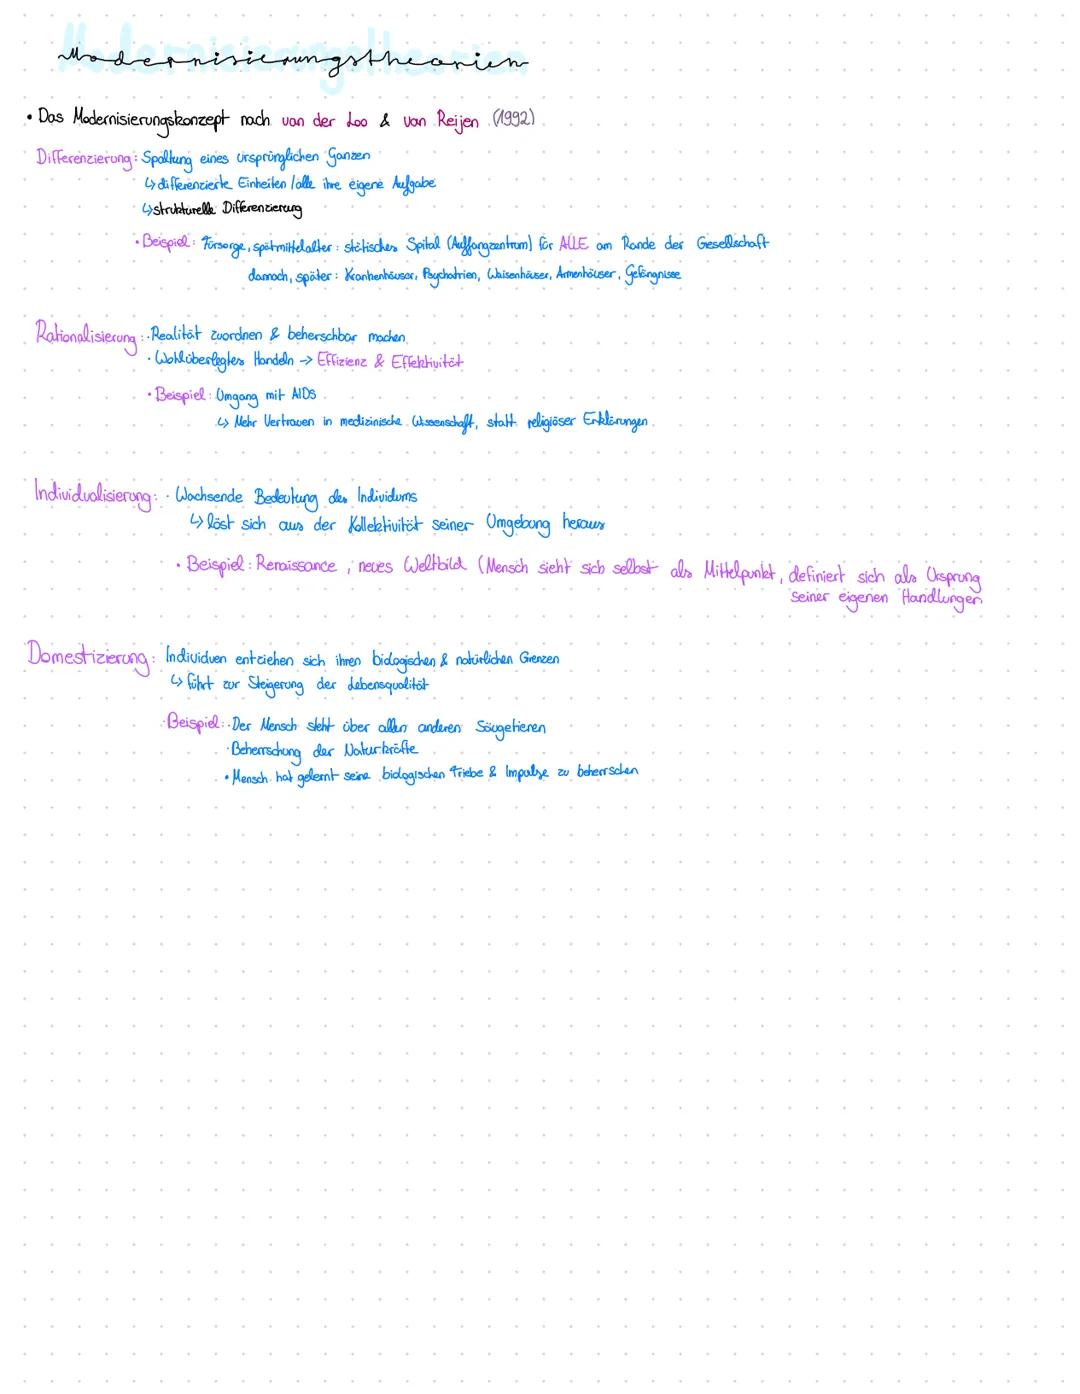 Modernisierungstheorien
• Das Modernisierungskonzept nach van der Loo & van Reijen (1992)
Differenzierung: Spaltung eines ursprünglichen Ganzen
↳ differenzierte Einheiten / alle ihre eigene Aufgabe
↳ strukturelle Differenzierung
• Beispiel: Fürsorge, spätmittelalter: stätisches Spital (Auffangzentrum) für ALLE am Rande der Gesellschaft
danach, später: Krankenhäuser, Psychatrien, Waisenhäuser, Armenhäuser, Gefängnisse
Rationalisierung: • Realität zuordnen & beherschbar machen
• Wohlüberlegtes Handeln → Effizienz & Effektivität
• Beispiel: Umgang mit AIDS
↳ Mehr Vertrauen in medizinische Wissenschaft, statt religiöser Erklärungen
Individualisierung: • Wachsende Bedeutung des Individums
↳ löst sich aus der Kollektivität seiner Umgebung heraus
• Beispiel: Renaissance, neues Weltbild (Mensch sieht sich selbst als Mittelpunkt, definiert sich als Ursprung
seiner eigenen Handlungen
Domestizierung: Individuen entziehen sich ihren biologischen & natürlichen Grenzen
↳ führt zur Steigerung der Lebensqualität
• Beispiel: • Der Mensch steht über allen anderen Säugetieren
• Beherrschung der Naturkräfte
• Mensch hat gelernt seine biologischen Triebe & Impulse zu beherrschen